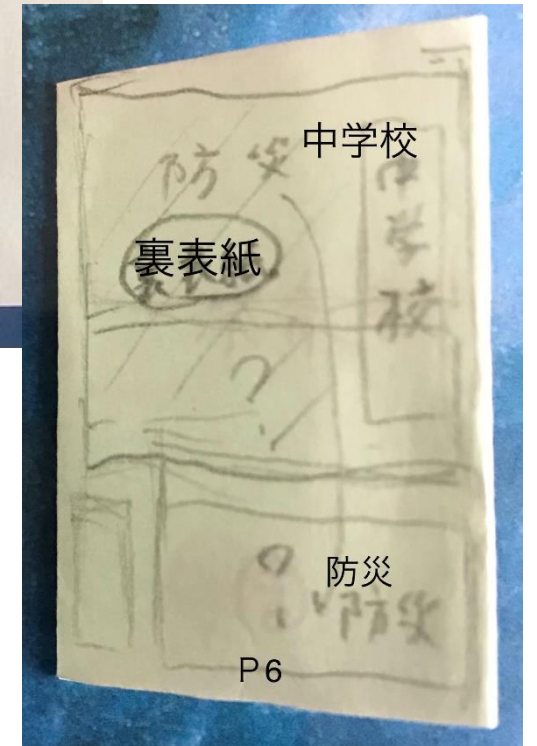 中学校
防災
中学校
裏表紙
?
?
防災
防災
P6